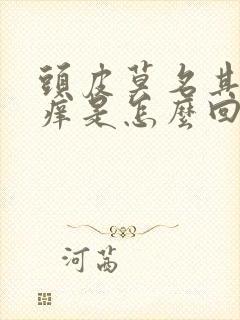 頭皮莫名其
癢是怎麼回
河茜